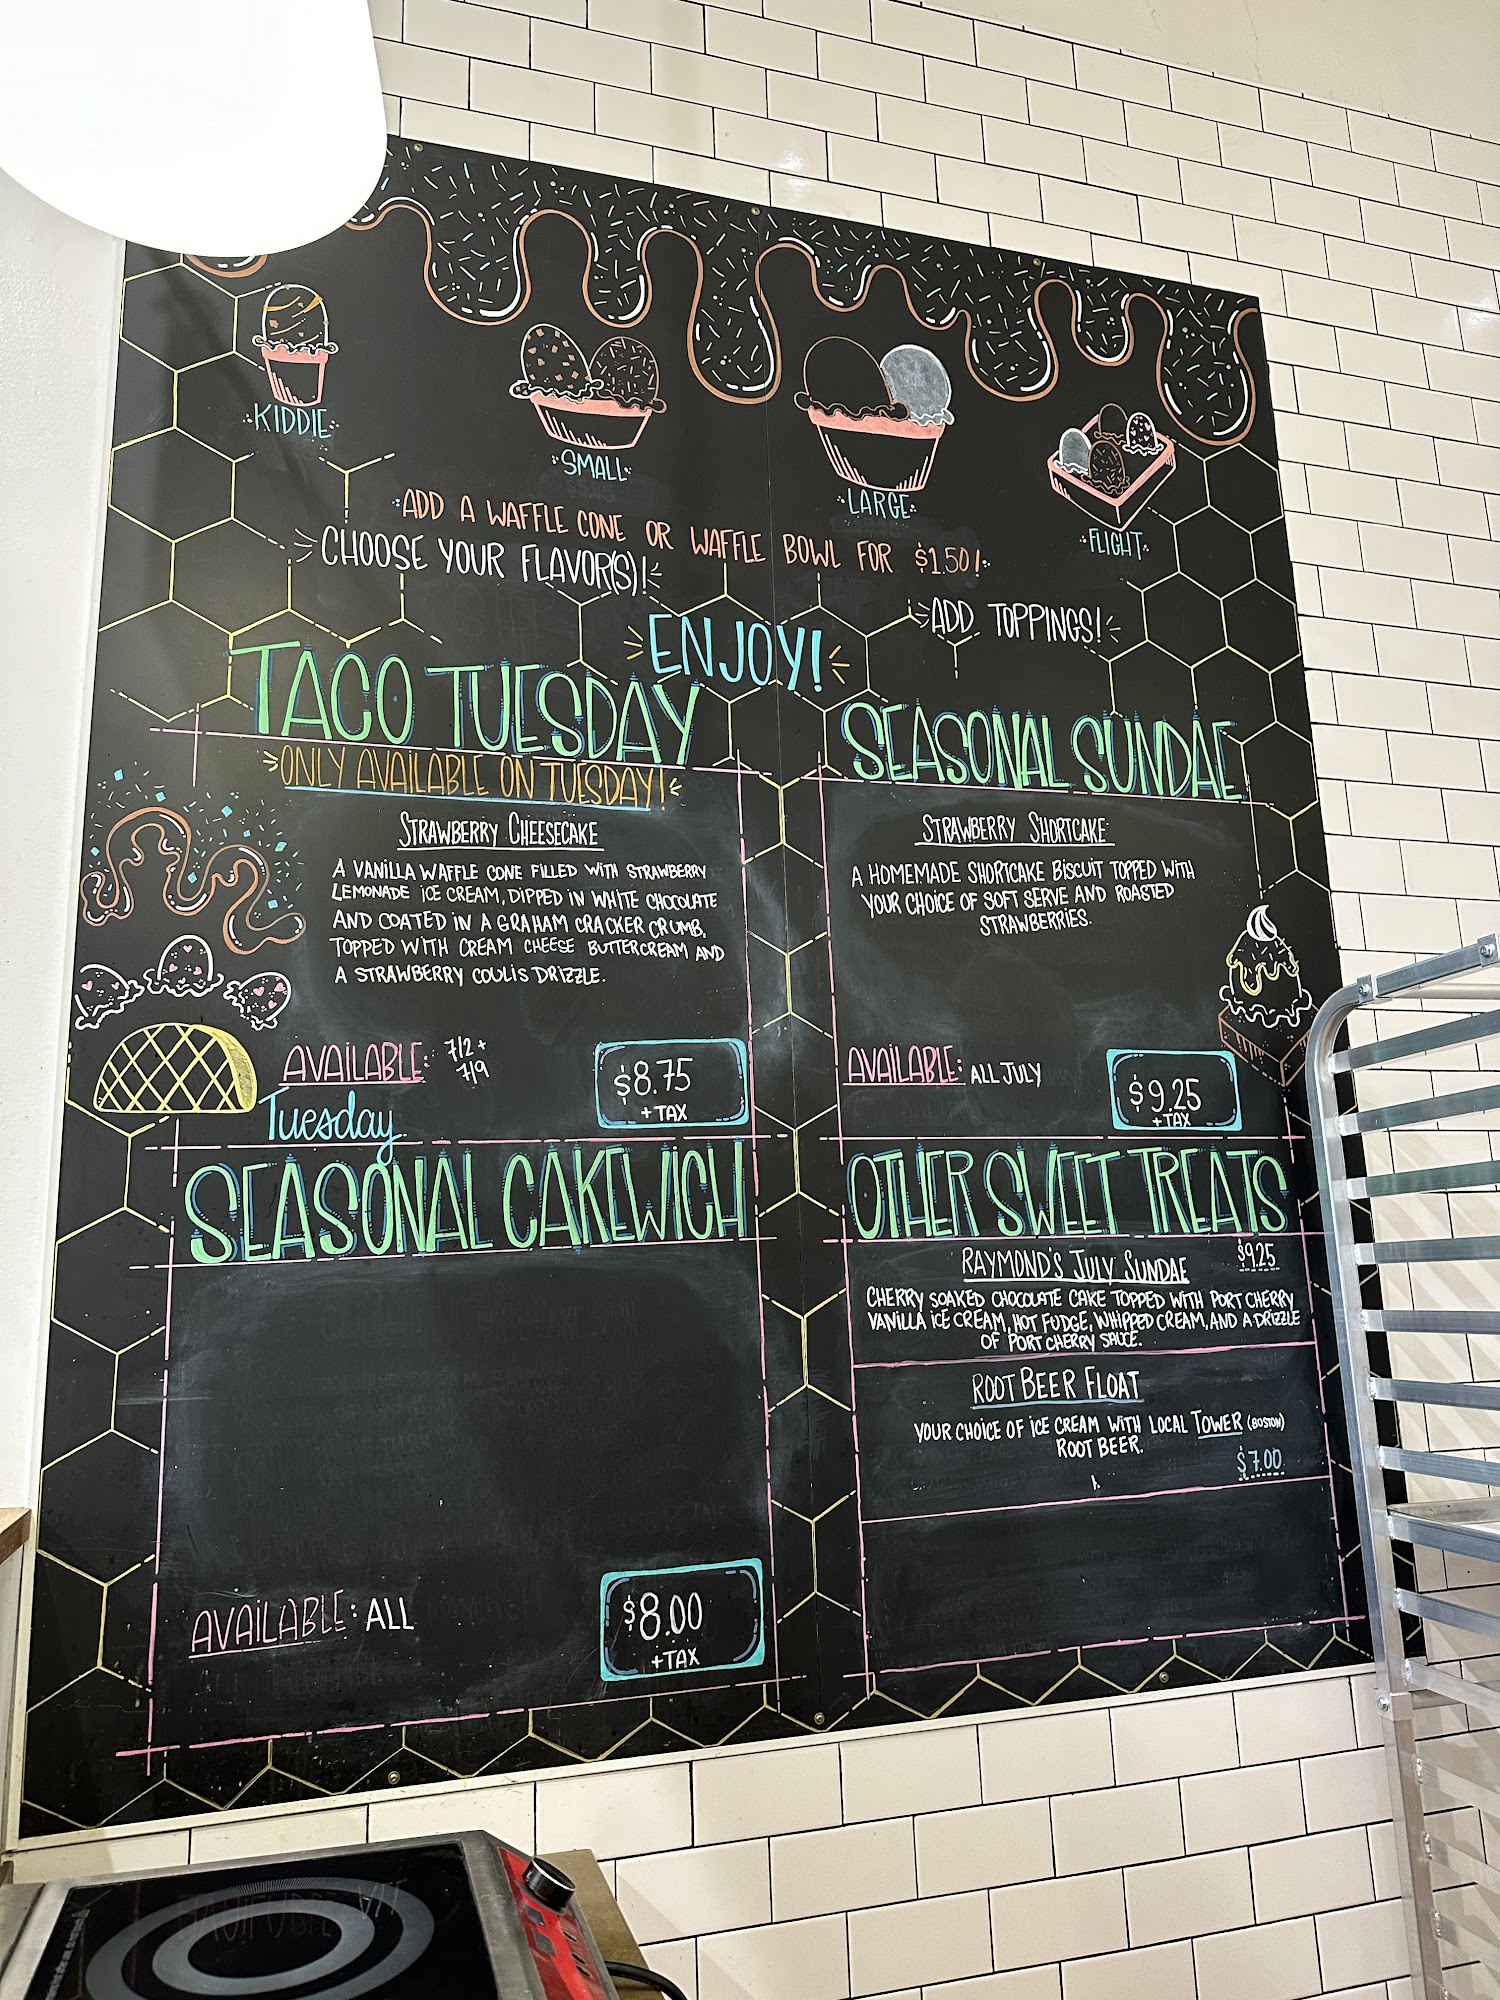 KIDDIE
SMALL
LARGE
FLIGHT
ADD A WAFFLE CONE OR WAFFLE BOWL FOR $1.50!
CHOOSE YOUR FLAVOR(S)!
ADD TOPPINGS!
ENJOY!
TACO TUESDAY
ONLY AVAILABLE ON TUESDAY!
STRAWBERRY CHEESECAKE
A VANILLA WAFFLE CONE FILLED WITH STRAWBERRY
LEMONADE ICE CREAM, DIPPED IN WHITE CHOCOLATE
AND COATED IN A GRAHAM CRACKER CRUMB,
TOPPED WITH CREAM CHEESE BUTTERCREAM AND
A STRAWBERRY COULIS DRIZZLE.
AVAILABLE: 7/2 +
7/9
Tuesday
$8.75
+ TAX
SEASONAL SUNDAE
STRAWBERRY SHORTCAKE
A HOMEMADE SHORTCAKE BISCUIT TOPPED WITH
YOUR CHOICE OF SOFT SERVE AND ROASTED
STRAWBERRIES.
AVAILABLE: ALL JULY
$9.25
+TAX
SEASONAL CAKEWICH
AVAILABLE: ALL
$8.00
+TAX
OTHER SWEET TREATS
RAYMOND'S JULY SUNDAE $9.25
CHERRY SOAKED CHOCOLATE CAKE TOPPED WITH PORT CHERRY
VANILLA ICE CREAM, HOT FUDGE, WHIPPED CREAM, AND A DRIZZLE
OF PORT CHERRY SAUCE.
ROOT BEER FLOAT
YOUR CHOICE OF ICE CREAM WITH LOCAL TOWER (BOSTON)
ROOT BEER.
$7.00